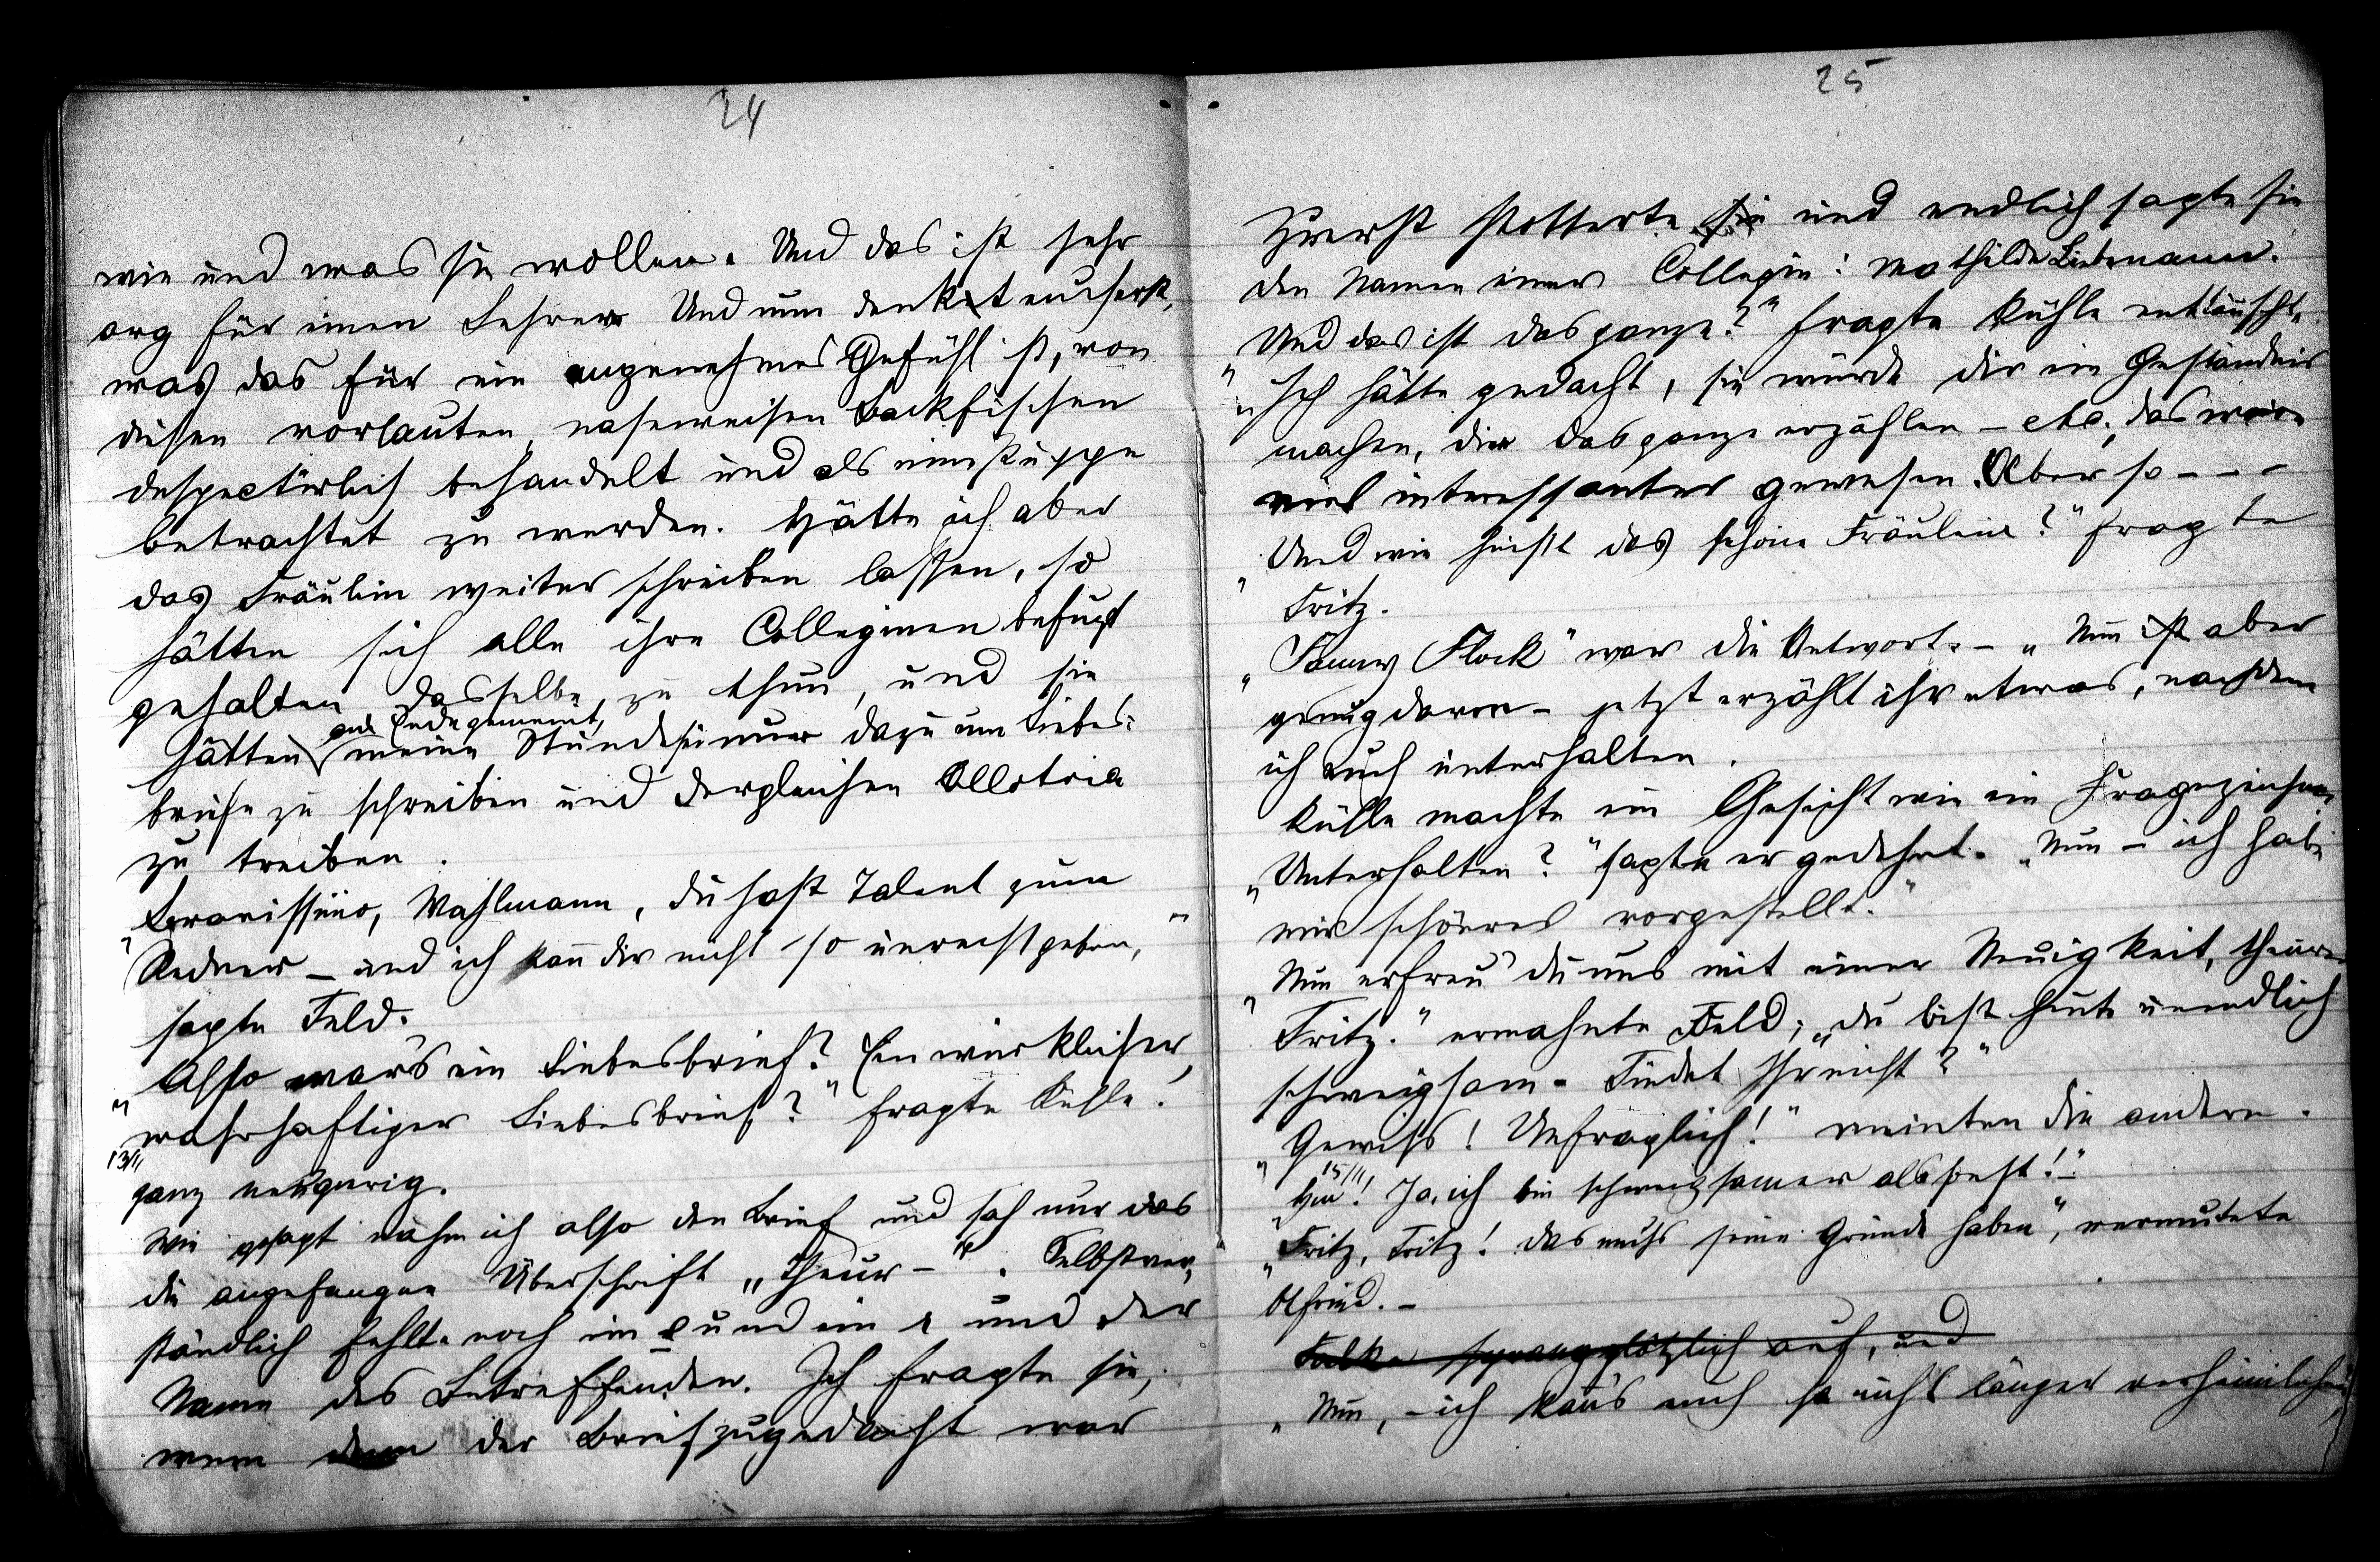 24
wie und was sie wollen. Und das ist sehr
arg für einen Lehrer Und nun denkt euch erst,
was das für ein angenehmes Gefühl ist, von
diesen vorlauten, naseweisen Backfischen
despectirlich behandelt und als eine Puppe
betrachtet zu werden. Hätte ich aber
das Fräulein weiter schreiben lassen, so
hätten sich alle ihre Colleginen befugt
gehalten dasselbe zu thun, und sie
am Ende gemeint,
hätten meine Stunde sei nur dazu um Liebes:
briefe zu schreiben und dergleichen Allotria
zu treiben.
"Bravissimo, Wahlmann, du hast Talent zum
Redner – und ich kañ dir nicht so unrecht geben,"
sagte Feld.
"Also war's ein Liebesbrief? Ein wirklicher,
wahrhaftiger Liebesbrief?" fragte Kühle.
13/11
ganz neugierig.
Wie gesagt nahm ich also den Brief und sah nur das
die angefangene Überschrift „Theur –". Selbstver,
ständlich fehlte noch ein e und ein r und der
Name des Betreffenden. Ich fragte sie,
wem denn der Brief zugedacht war
25
Zuerst stotterte sie und endlich sagte sie
den Namen einer Collegin: Mathilde Liebmann.
"Und das ist das ganze?" fragte Kühle enttäuscht.
"Ich hätte gedacht, sie würde dir ein Geständnis
machen, dir das ganze erzählen – etc., das wäre
viel interessanter gewesen. Aber so – – –
"Und wie heisst das schöne Fräulein?" fragte
Fritz.
"Fanny Flock" war die Antwort. – „Nun ist aber
genug davon – jetzt erzählt ihr etwas, nachdem
ich euch unterhalten.
Kühle machte ein Gesicht wie ein Fragezeichen.
"Unterhalten?" sagte er gedehnt. „Nun – ich habe
mirs schöner vorgestellt."
"Nun erfreu' du uns mit einer Neuigkeit, theurer
Fritz." ermahnte Feld; „du bist heute unendlich
schweigsam. Findet Ihr nicht?"
"Gewiss! Unfraglich!" meinten die andern.
15/11
"Hm! Ja, ich bin schweigsamer als sonst!" –
"Fritz, Fritz! das muss seine Gründe haben", vermutete
Olfried. –
Falke sprang plötzlich auf, und
"Nun, – ich kañ's euch ja nicht länger verheimlichen,